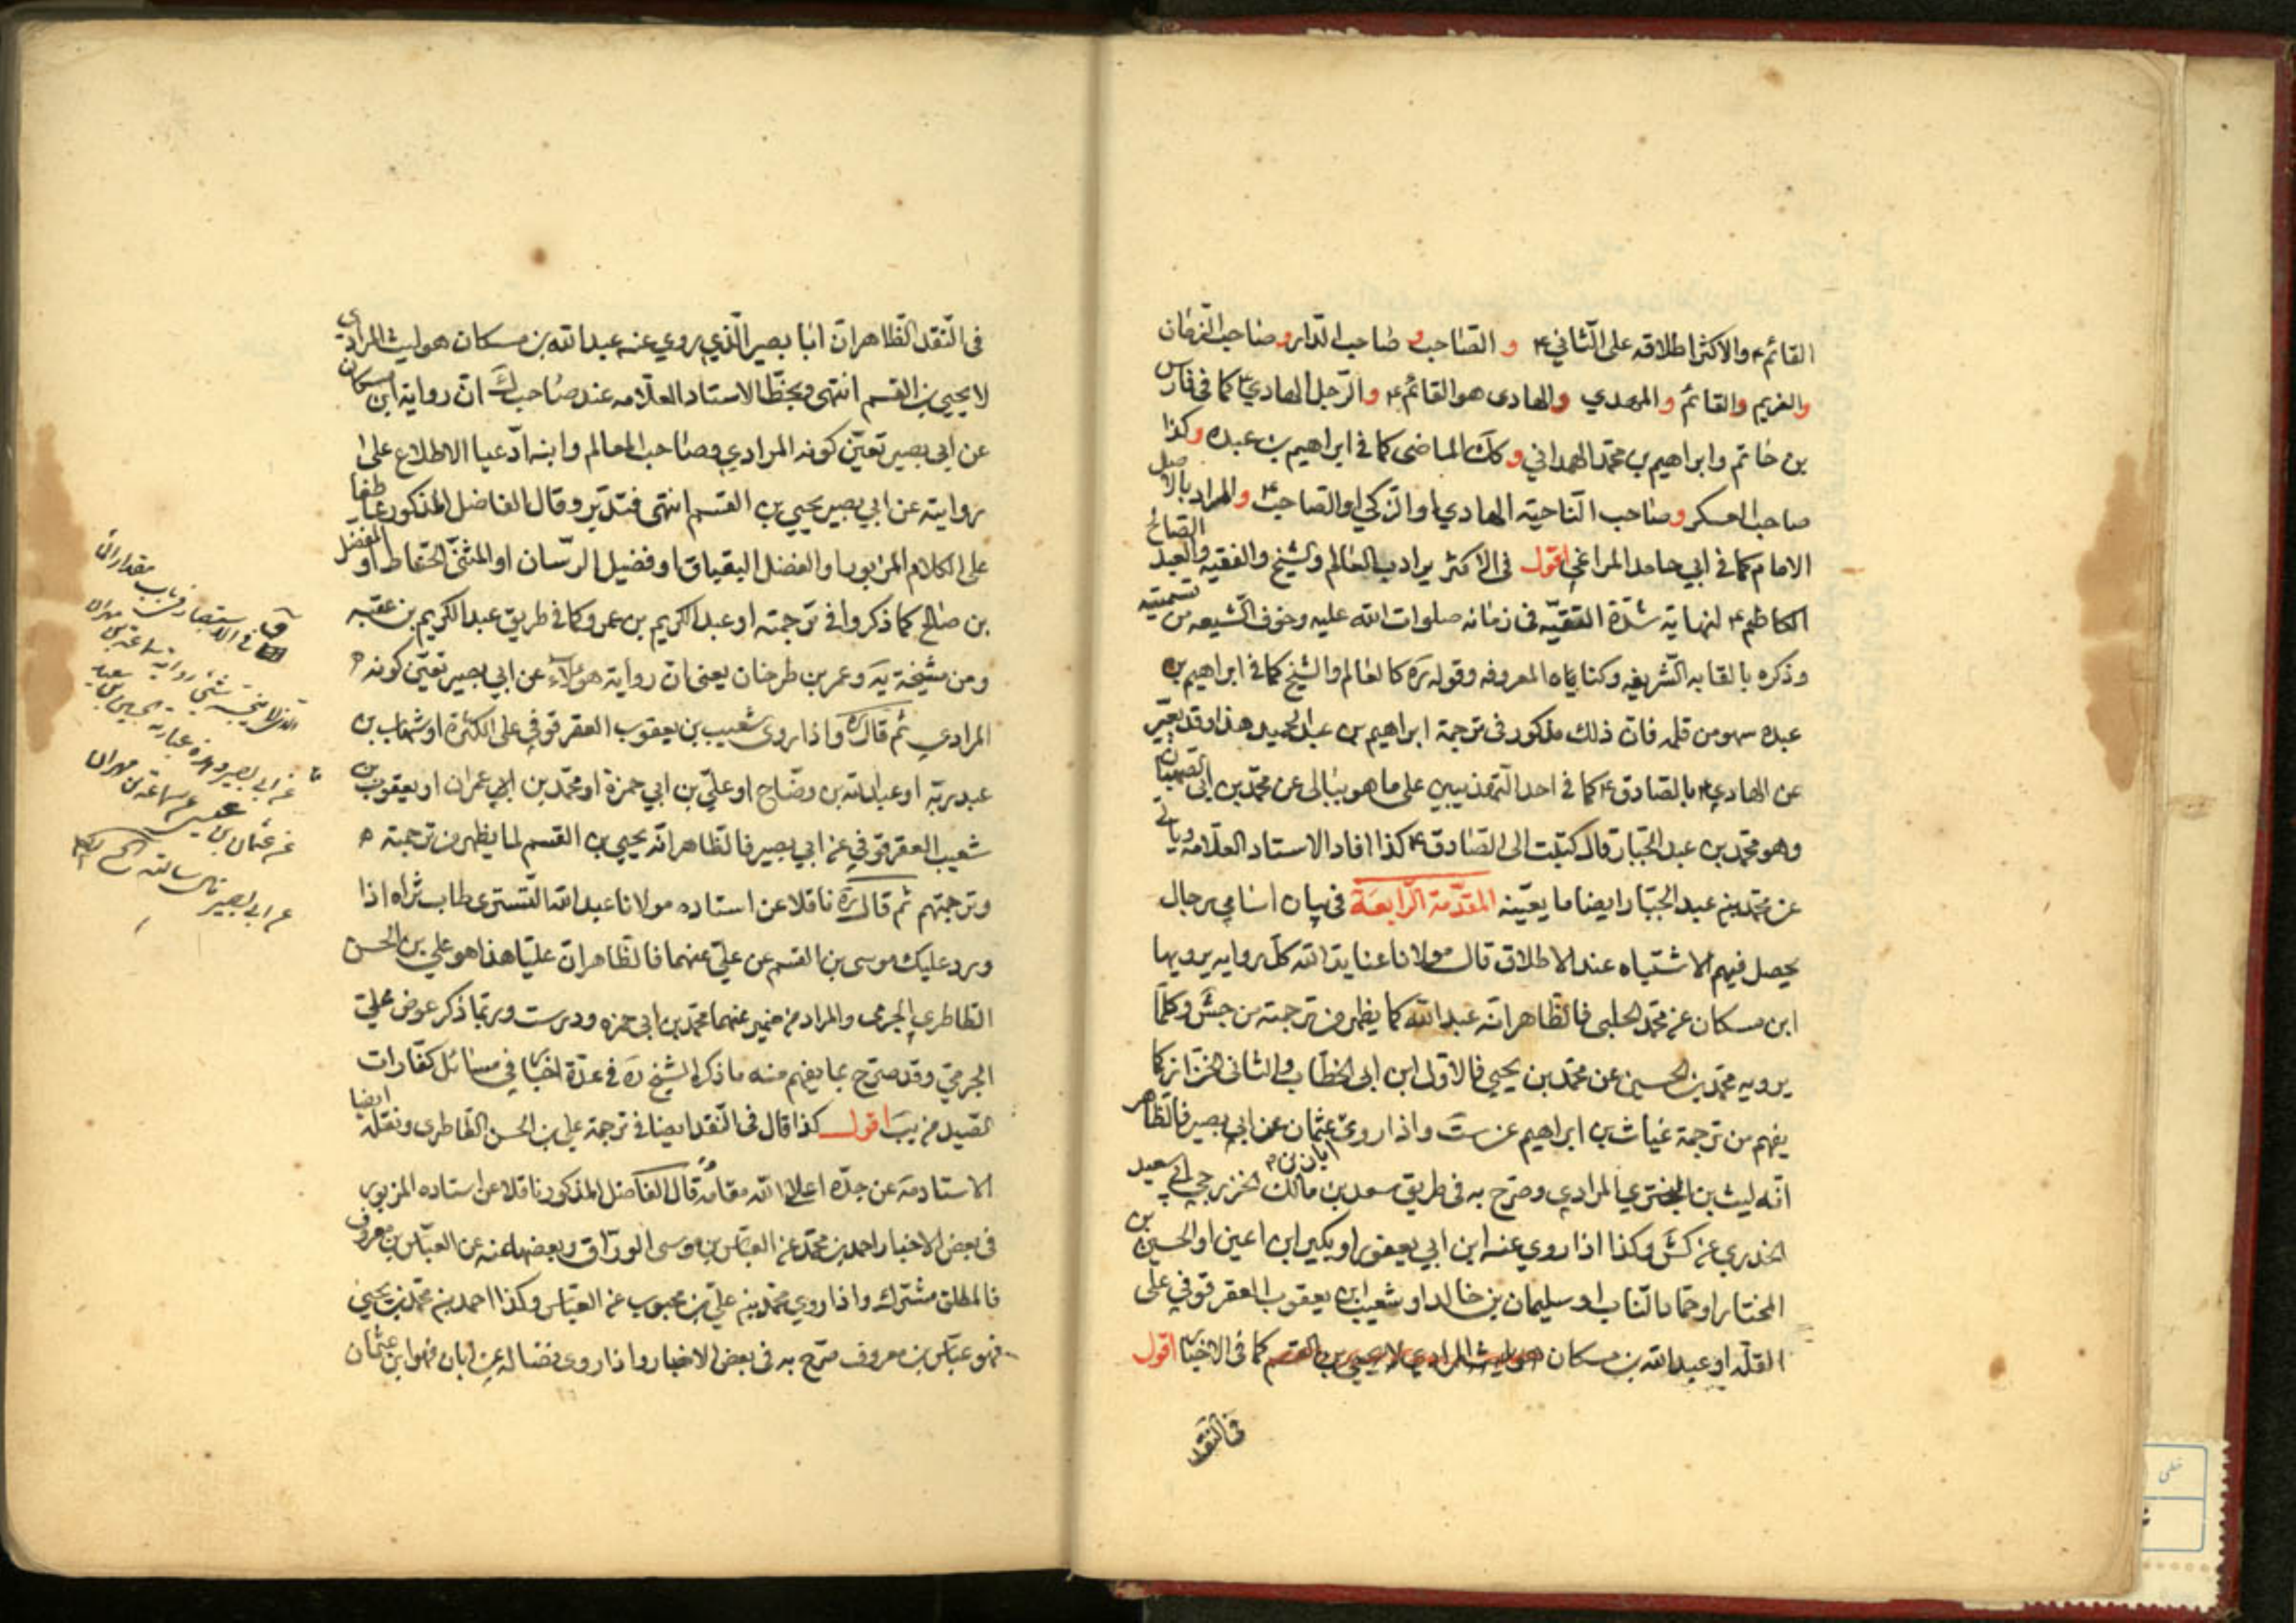 القائم ۴ والاكثر اطلاقه على الثاني ۴ و الصاحب و صاحب الدار و صاحب الزمان
والغريم والقائم والمهدي والهادى هو القائم ۴ والرجل الهادي ۴ كما في فارس
بن حاتم وابراهيم بن محمد الهمداني وكك الماضى كما في ابراهيم بن عبده وكذا
صاحب العسكر وصاحب الناحيه الهادي او الزكي او الصاحب ۴ والمراد بالاصيل
الامام كما في ابي حامد المراغي اقول فى الاكثر يراد بالعالم والشيخ والفقيه والعبد الصالح
الكاظم ۴ لنهاية شدة التقيه في زمانه صلوات الله عليه وخوف الشيعه من تسميته
وذكره بالقابه الشريفه وكناياه المعروفه وقوله ره كالعالم والشيخ كما في ابراهيم بن
عبده سهو من قلمه فان ذلك مذكور فى ترجمة ابراهيم بن عبد الحميد هذا وقد يعبر
عن الهادي ۴ بالصادق ۴ كما فى احد التهذيبين على ما هو ببالى عن محمد بن ابى الصهبان
وهو محمد بن عبد الجبار قال كتبت الى الصادق ۴ كذا افاد الاستاد العلامه وياتي
عن محمد بن عبد الجبار ايضا ما يعينه المقدمة الرابعة فى بيان اسامي رجال
يحصل فيهم الاشتباه عند الاطلاق قال مولانا عناية الله كل روايه يرويها
ابن مسكان عن محمد الحلبى فالظاهر انه عبد الله كما يظهر من ترجمته من جش وكلما
يرويه محمد بن الحسين عن محمد بن يحيى فالاول ابن ابى الخطاب والثانى الخزاز كما
يفهم من ترجمة غياث بن ابراهيم عن ست واذا روى ابان بن عثمان عن ابى بصير فالظاهر
انه ليث بن البختري المرادي وصرح به فى طريق سعد بن مالك الخزرجي ابى سعيد
الخدري عن كش وكذا اذا روى عنه ابن ابي يعفور او بكير ابن اعين او الحسين بن
المختار او حماد الناب او سليمان بن خالد او شعيب ابن يعقوب العقرقوفي على
القلة او عبد الله بن مسكان هو ليث المرادي لا يحيى بن القسم كما فى الاخبار اقول
فى النقد
فى النقد الظاهر ان ابا بصير الذي يروي عنه عبد الله بن مسكان هو ليث المرادي
لا يحيى بن القسم انتهى وبخط الاستاد العلامه عند صاحب ك ان رواية ابن مسكان
عن ابى بصير تعين كونه المرادي وصاحب المعالم وابنه ادعيا الاطلاع على
روايته عن ابي بصير يحيى بن القسم انتهى فتدبر وقال الفاضل المذكور عاطفا
على الكلام المزبور او الفضل البقباق او فضيل الرسان او المثنى الحناط او المفضل
بن صالح كما ذكروا في ترجمته او عبد الكريم بن عمرو كما فى طريق عبد الكريم بن عتبه
ومن مشيخة يه وعمر بن طرخان يعنى ان رواية هؤلاء عن ابي بصير تعين كونه
المرادي ثم قال ره واذا روى شعيب بن يعقوب العقرقوفي على الكثرة او شهاب بن
عبد ربه او عبد الله بن وضاح او علي بن ابي حمزة او محمد بن ابي عمران او يعقوب بن
شعيب العقرقوفي عن ابي بصير فالظاهر انه يحيى بن القسم لما يظهر من ترجمته
وترجمتهم ثم قال ره ناقلا عن استاده مولانا عبد الله التستري طاب ثراه اذا
ورد عليك موسى بن القسم عن علي عنهما فالظاهر ان عليا هذا هو علي بن الحسن
الطاطري الجرمى والمراد من ضمير عنهما محمد بن ابى حمزه ودرست وربما ذكر عوض علي
الجرمي وقد صرح بما يفهم منه ما ذكره الشيخ ره في عدة اخبار فى مسائل كفارات
الصيد من يب اقول كذا قال فى النقد ايضا فى ترجمة علي بن الحسن الطاطرى ونقله ايضا
الاستاد مه عن جده اعلا الله مقامه قال الفاضل المذكور ناقلا عن استاده المزبور
فى بعض الاخبار احمد بن محمد عن العباس بن موسى الوراق وبعضها عنه عن العباس بن معروف
فالمطلق مشترك واذا روى محمد بن علي بن محبوب عن العباس وكذا احمد بن محمد بن يحيى
فهو عباس بن معروف صرح به فى بعض الاخبار واذا روى فضاله عن ابان فهو ابن عثمان
عن ابى بصير
عن عثمان بن عيسى عن سماعة بن مهران
عن ابى بصير قال سالته